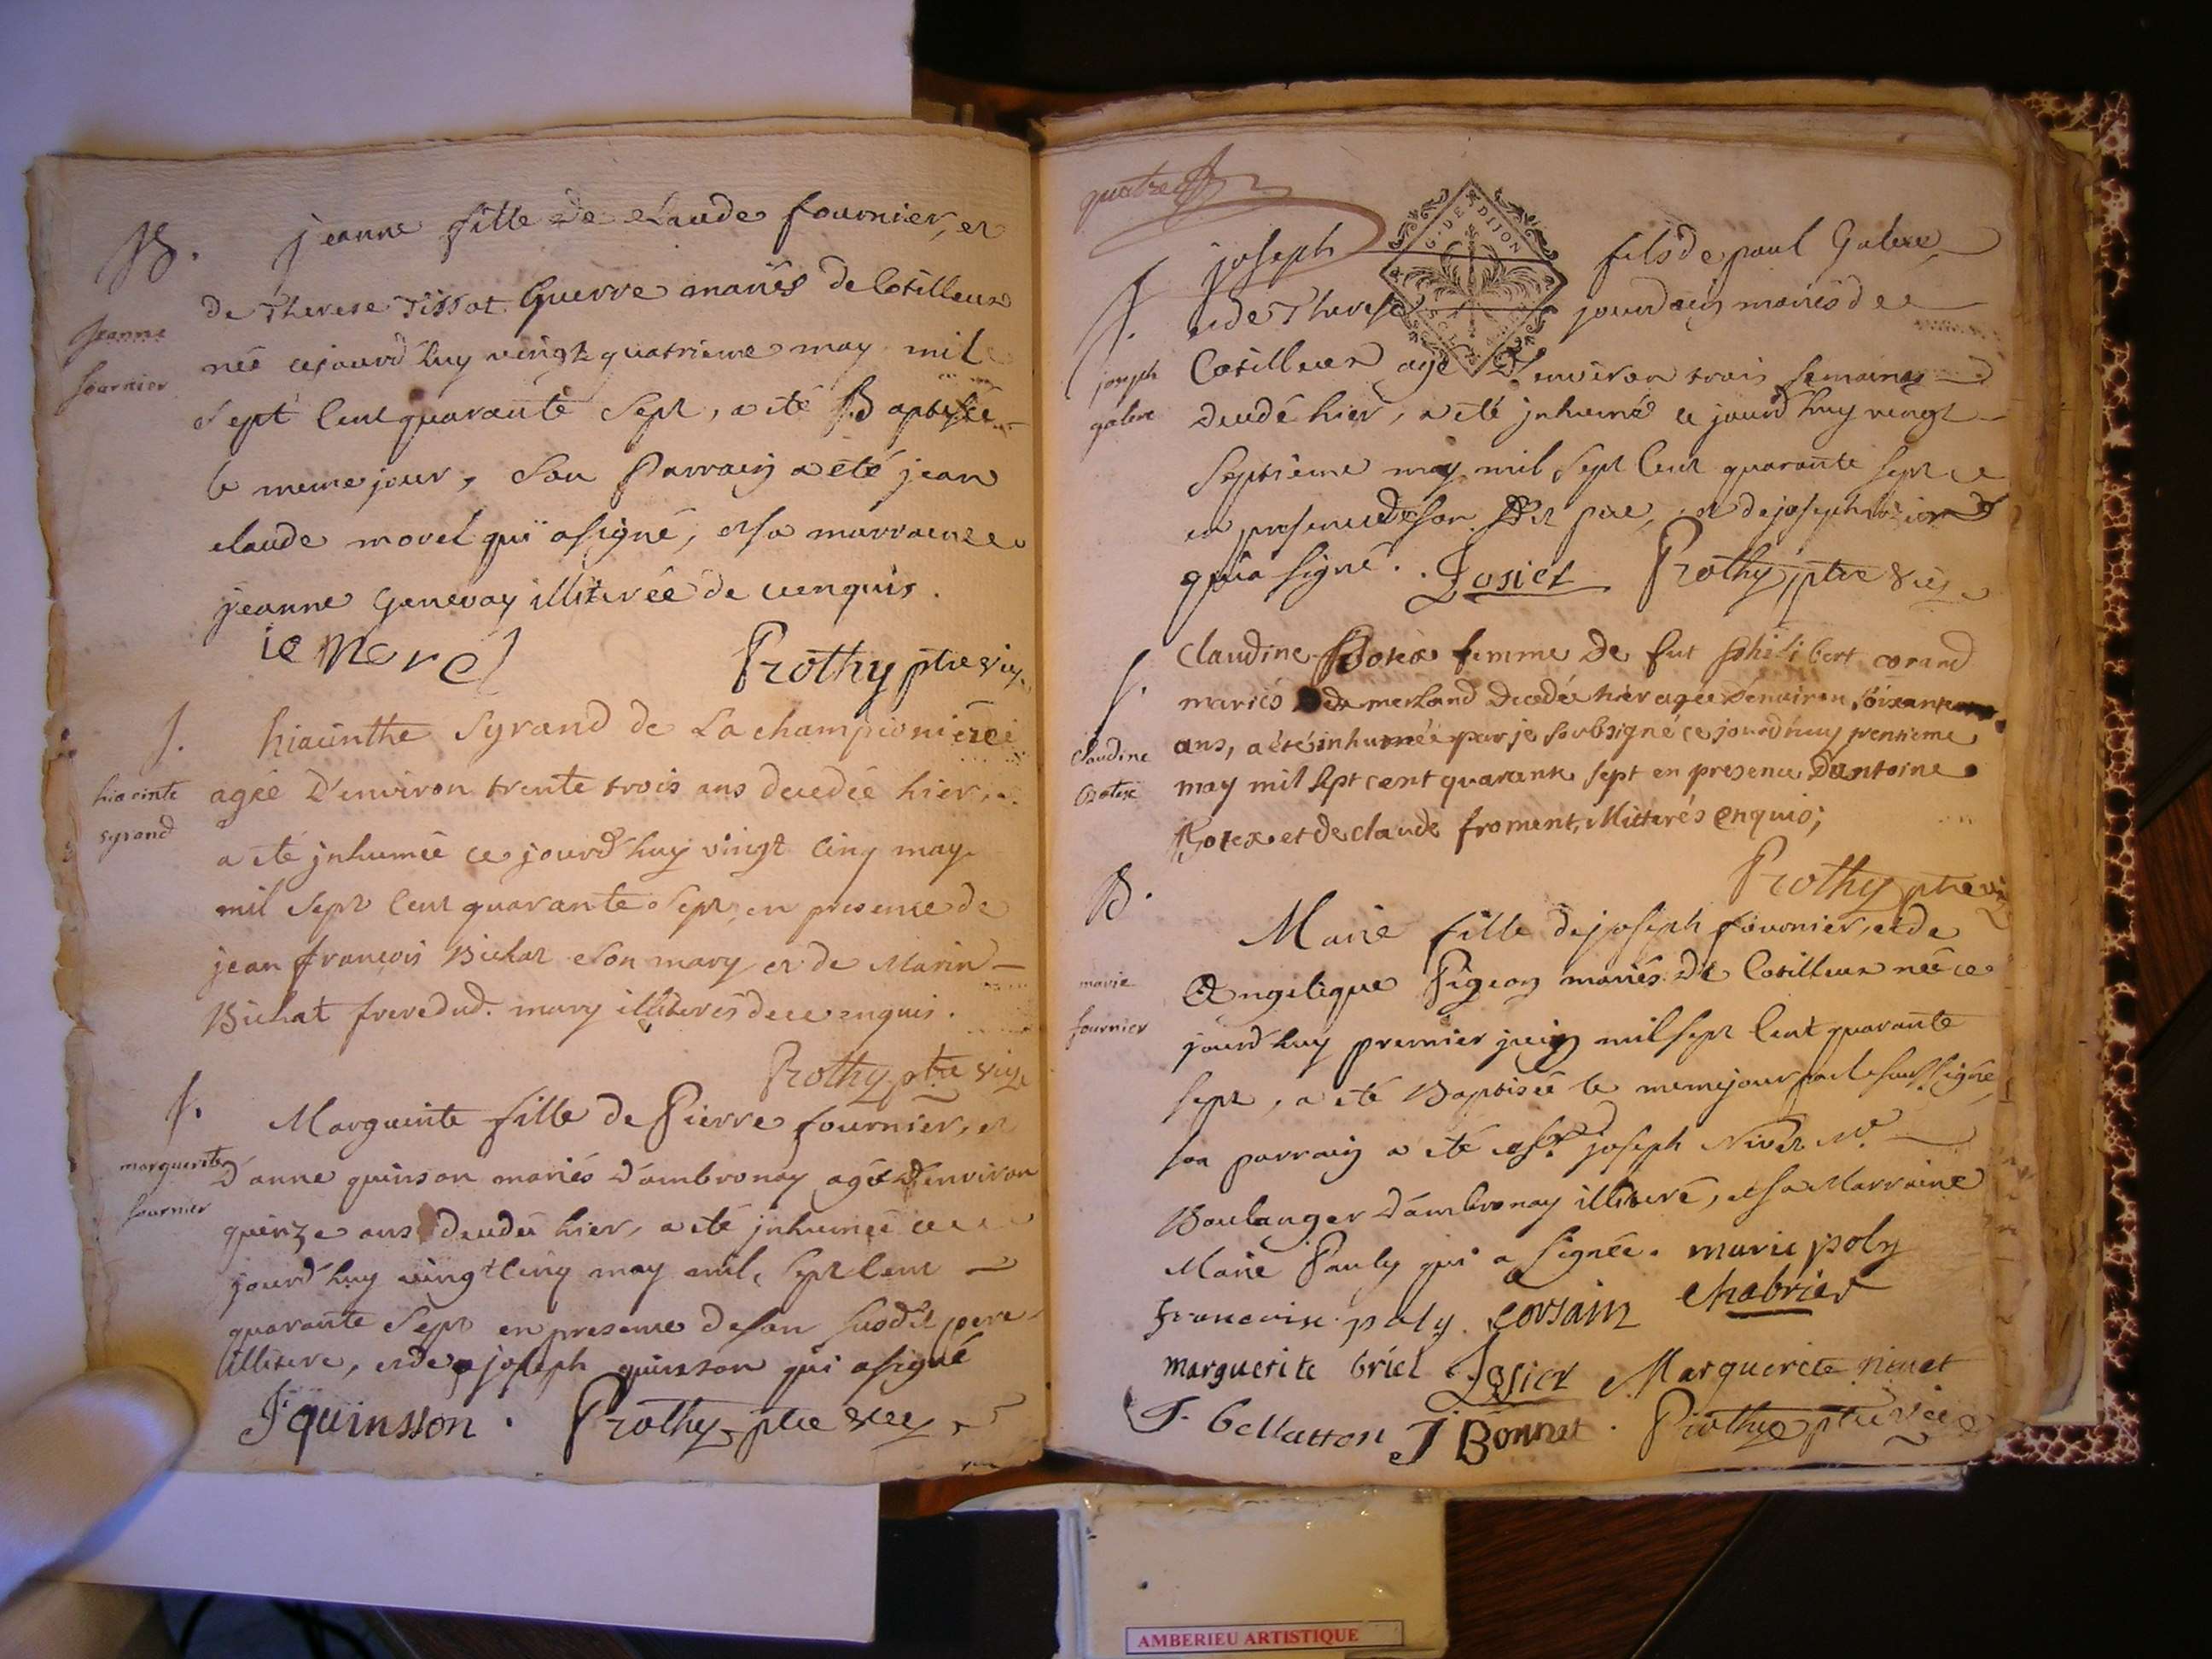 B.
jeanne fille de claude fournier, et
de Therese Tissot Guerre mariés de Cotilleux
jeanne
fournier
née cejourd'huy vingt quatrieme may mil
sept cent quarante sept, a été Baptisée
le meme jour, son Parrain a été jean
claude morel qui a signé, et sa marraine
jeanne Genevay illiterée de ce enquis.
ie Morel Prothy ptre vic
J.
hiacinthe Syrand de La championiere
hiacinte
syrand
agée d'environ trente trois ans decedée hier,
a été jnhumée ce jourd'huy vingt cinq may
mil sept cent quarante sept, en presence de
jean françois Bichat son mary et de Marin
Bichat frere dud. mary illiterés de ce enquis.
Prothy ptre vic
J.
Marguerite fille de Pierre fournier, et
marguerite
fournier
d'anne quinson mariés d'ambronay agée d'environ
quinze ans decedée hier, a été jnhumée ce
jourd'huy vingt cinq may mil sept cent
quarante sept en presence de son susdit pere
illiteré, et de joseph quinson qui a signé
J. quinsson. Prothy ptre vic
quatre
G. DE DIJON
joseph fils de paul Galere
J.
et de Therese jourdain mariés de
joseph
galere
Cotilleux agé d'environ trois semaines
decedé hier, a été jnhumé ce jourd'huy vingt
septieme may mil sept cent quarante sept
en presence de son dit pere, et de joseph
qui a signé. Josiet Prothy ptre vic
J.
claudine Botex femme de fut philibert corand
mariés de merland decedée hier agée d'environ soixante
claudine
Botex
ans, a été inhumée par je soubsigné ce jourd'huy trentieme
may mil sept cent quarante sept en presence d'antoine
Botex et de claude froment, illitterés enquis;
Prothy ptre vic
B.
Marie fille de joseph fournier, et de
marie
fournier
Angelique Pigeon mariés de Cotilleux née ce
jourd'huy premier juin mil sept cent quarante
sept, a été Baptisée le meme jour par le soussigné,
son parrain a été sr. joseph Nivet Me.
Boulanger d'ambronay illiteré, et sa Marraine
Marie Pauly qui a signée. marie poly
francoise poly corsain Chabrier
marguerite briel Josiet Marguerite nivet
F. bellatton J Bonnet. Prothy ptre vic
AMBERIEU ARTISTIQUE